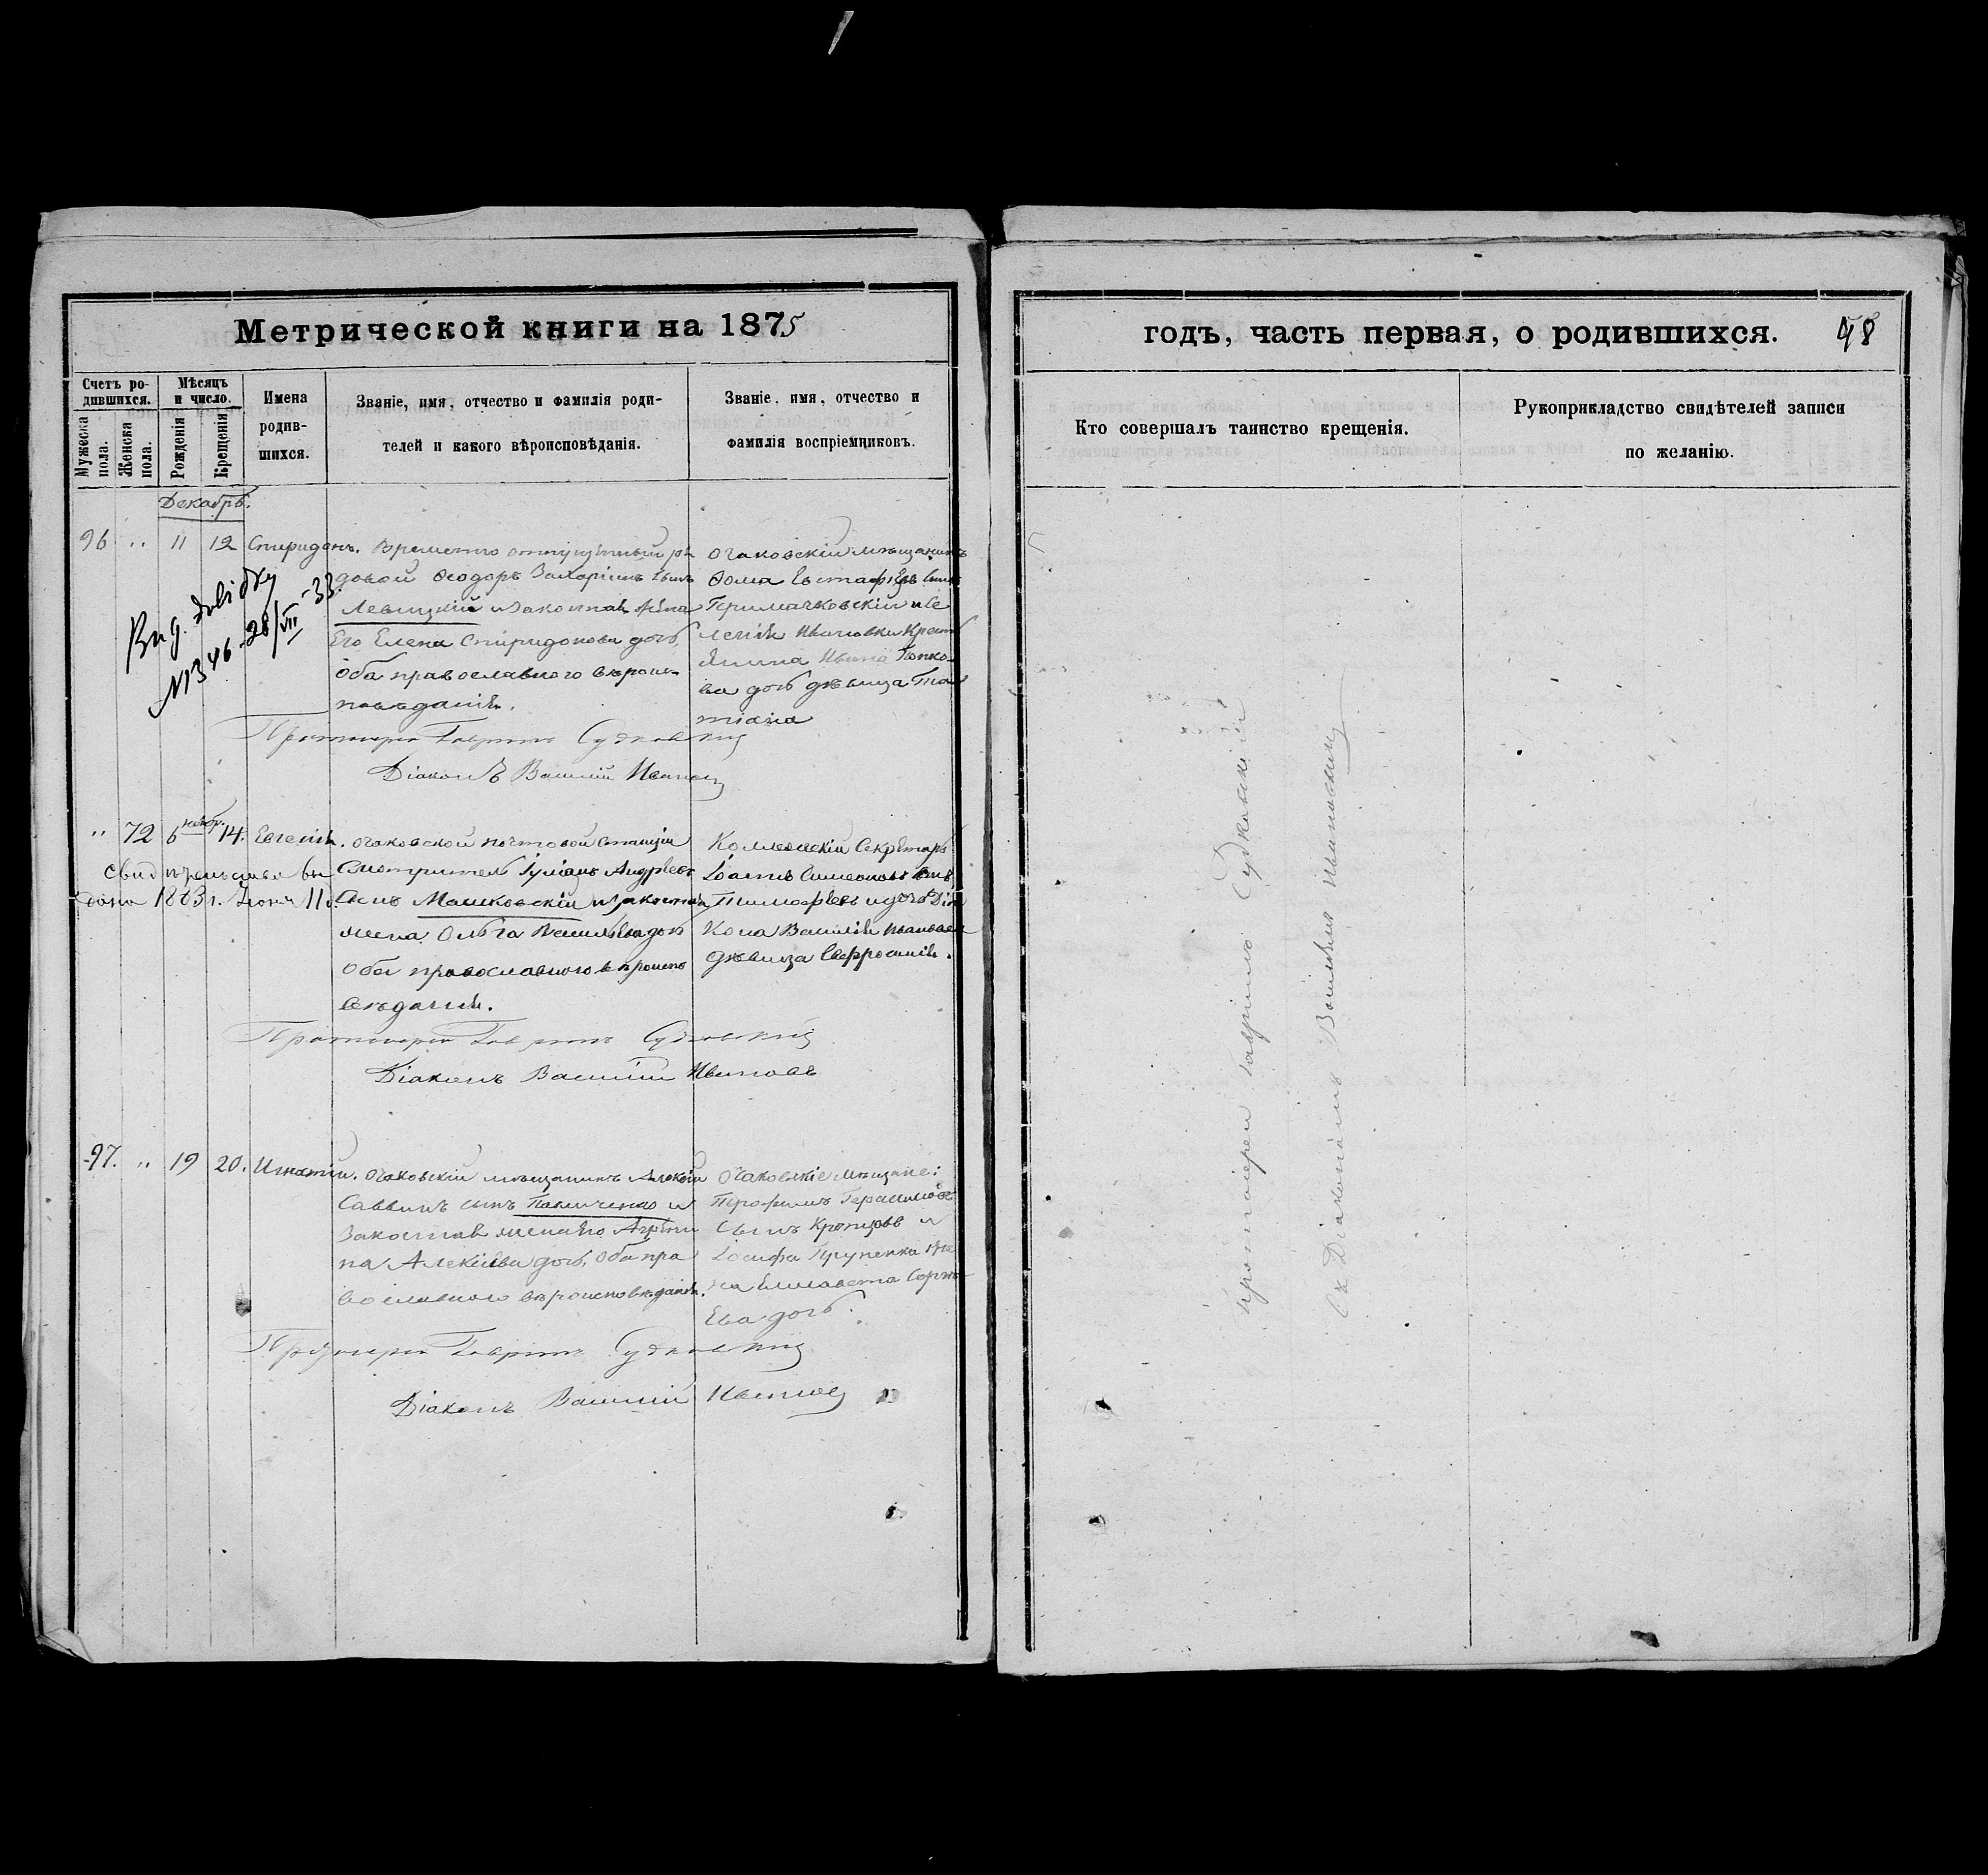 Метрической книги на 1875
Счетъ ро-
дившихся.
Мѣсяцъ
и число.
Мужеска
пола.
Женска
пола.
Рожденія
Крещенія
Имена
родив-
шихся.
Званіе, имя, отчество и фамилія роди-
телей и какого вѣроисповѣданія.
Званіе, имя, отчество и
фамилія воспріемниковъ.
Декабрь.
96 " 11 12 Спиридонъ. Временно отпускный ря
довой Ѳеодоръ Захаріинъ сынъ
Левицкій и законная жена
Его Елена Спиридонова дочь,
оба православного вѣроис-
повѣданія.
Очаковскій мѣщанинъ
Ѳома Евстафіевъ сынъ
и се
ленія Ивановки Крест
янина Ивана Попко-
ва дочь дѣвица Та
тіана
Вид. довідку
№346 28/VII-33
Протоиерей Гавріилъ Судковскій
Діаконъ Василій Ивановъ
" 72 6 ноябр. 14. Евгенія. Очаковской почтовой станціи
Смотритель Іуліанъ Андреевъ
Сынъ Машковскій и законная
жена Ольга Васильева дочь
оба православного вѣроиспо
вѣданія.
Коллежскій Секретарь
Іоаннъ Симеоновъ сынъ
Тимофѣевъ и дочь Діа
кона Василія Иванова
дѣвица Евфросинія.
свид
дано 1883 г. Іюня 11 д.
Протоиерей Гавріилъ Судковскій
Діаконъ Василій Ивановъ
97. " 19 20. Игнатій. Очаковскій мѣщанинъ Алексій
Саввинъ сынъ Павличенко и
Законная жена его Агрипи
на Алексіева дочь, оба пра
вославного вѣроисповѣданія.
Очаковскіе мѣщане:
Трофимъ Герасимовъ
Сынъ Кропцовъ и
Іосифа же
на Елисавета Сергѣ-
Ева дочь.
Протоиерей Гавріилъ Судковскій
Діаконъ Василій Ивановъ
годъ, часть первая, о родившихся. 48
Кто совершалъ таинство крещенія.
Рукоприкладство свидѣтелей записи
по желанію.
протоиереи Гавріилъ Судковскій
съ Діакономъ Василіемъ Ивановымъ